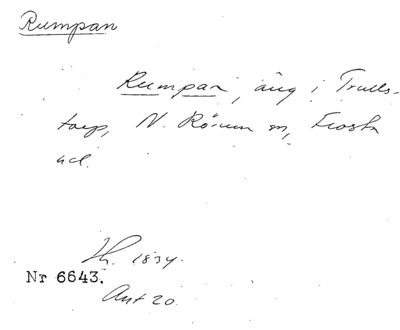 Rumpan
Rumpan, äng i Trulls-
torp, N. Rörum sn, Frosta
hd.
1834.
Nr 6643.
Akt 20.